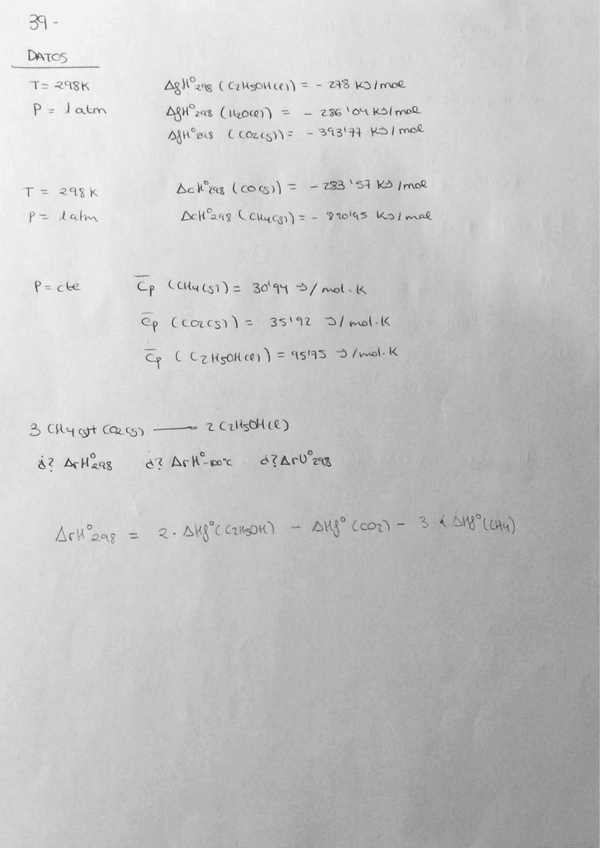 39-
DATOS
T = 298K ΔfH°298 (C2H5OH(l)) = - 278 KJ/mol
P = 1 atm ΔfH°298 (H2O(l)) = - 286'04 KJ/mol
ΔfH°298 (CO2(g)) = - 393'77 KJ/mol
T = 298 K ΔcH°298 (CO(g)) = - 283'57 KJ/mol
P = 1 atm ΔcH°298 (CH4(g)) = - 890'95 KJ/mol
P = cte C̅p (CH4(g)) = 30'94 J/mol.K
C̅p (CO2(g)) = 35'92 J/mol.K
C̅p (C2H5OH(l)) = 95'75 J/mol.K
3 CH4(g)+ CO2(g) ⟶ 2 C2H5OH(l)
¿? ΔrH°298 ¿? ΔrH°-100°C ¿? ΔrU°298
ΔrH°298 = 2 · ΔHf°(C2H5OH) - ΔHf°(CO2) - 3 · ΔHf°(CH4)